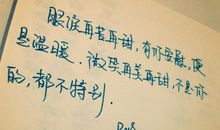 眼泪再苦再甜，有你安慰，便
是温暖．微笑再美再甜，不是你
的，都不特别．